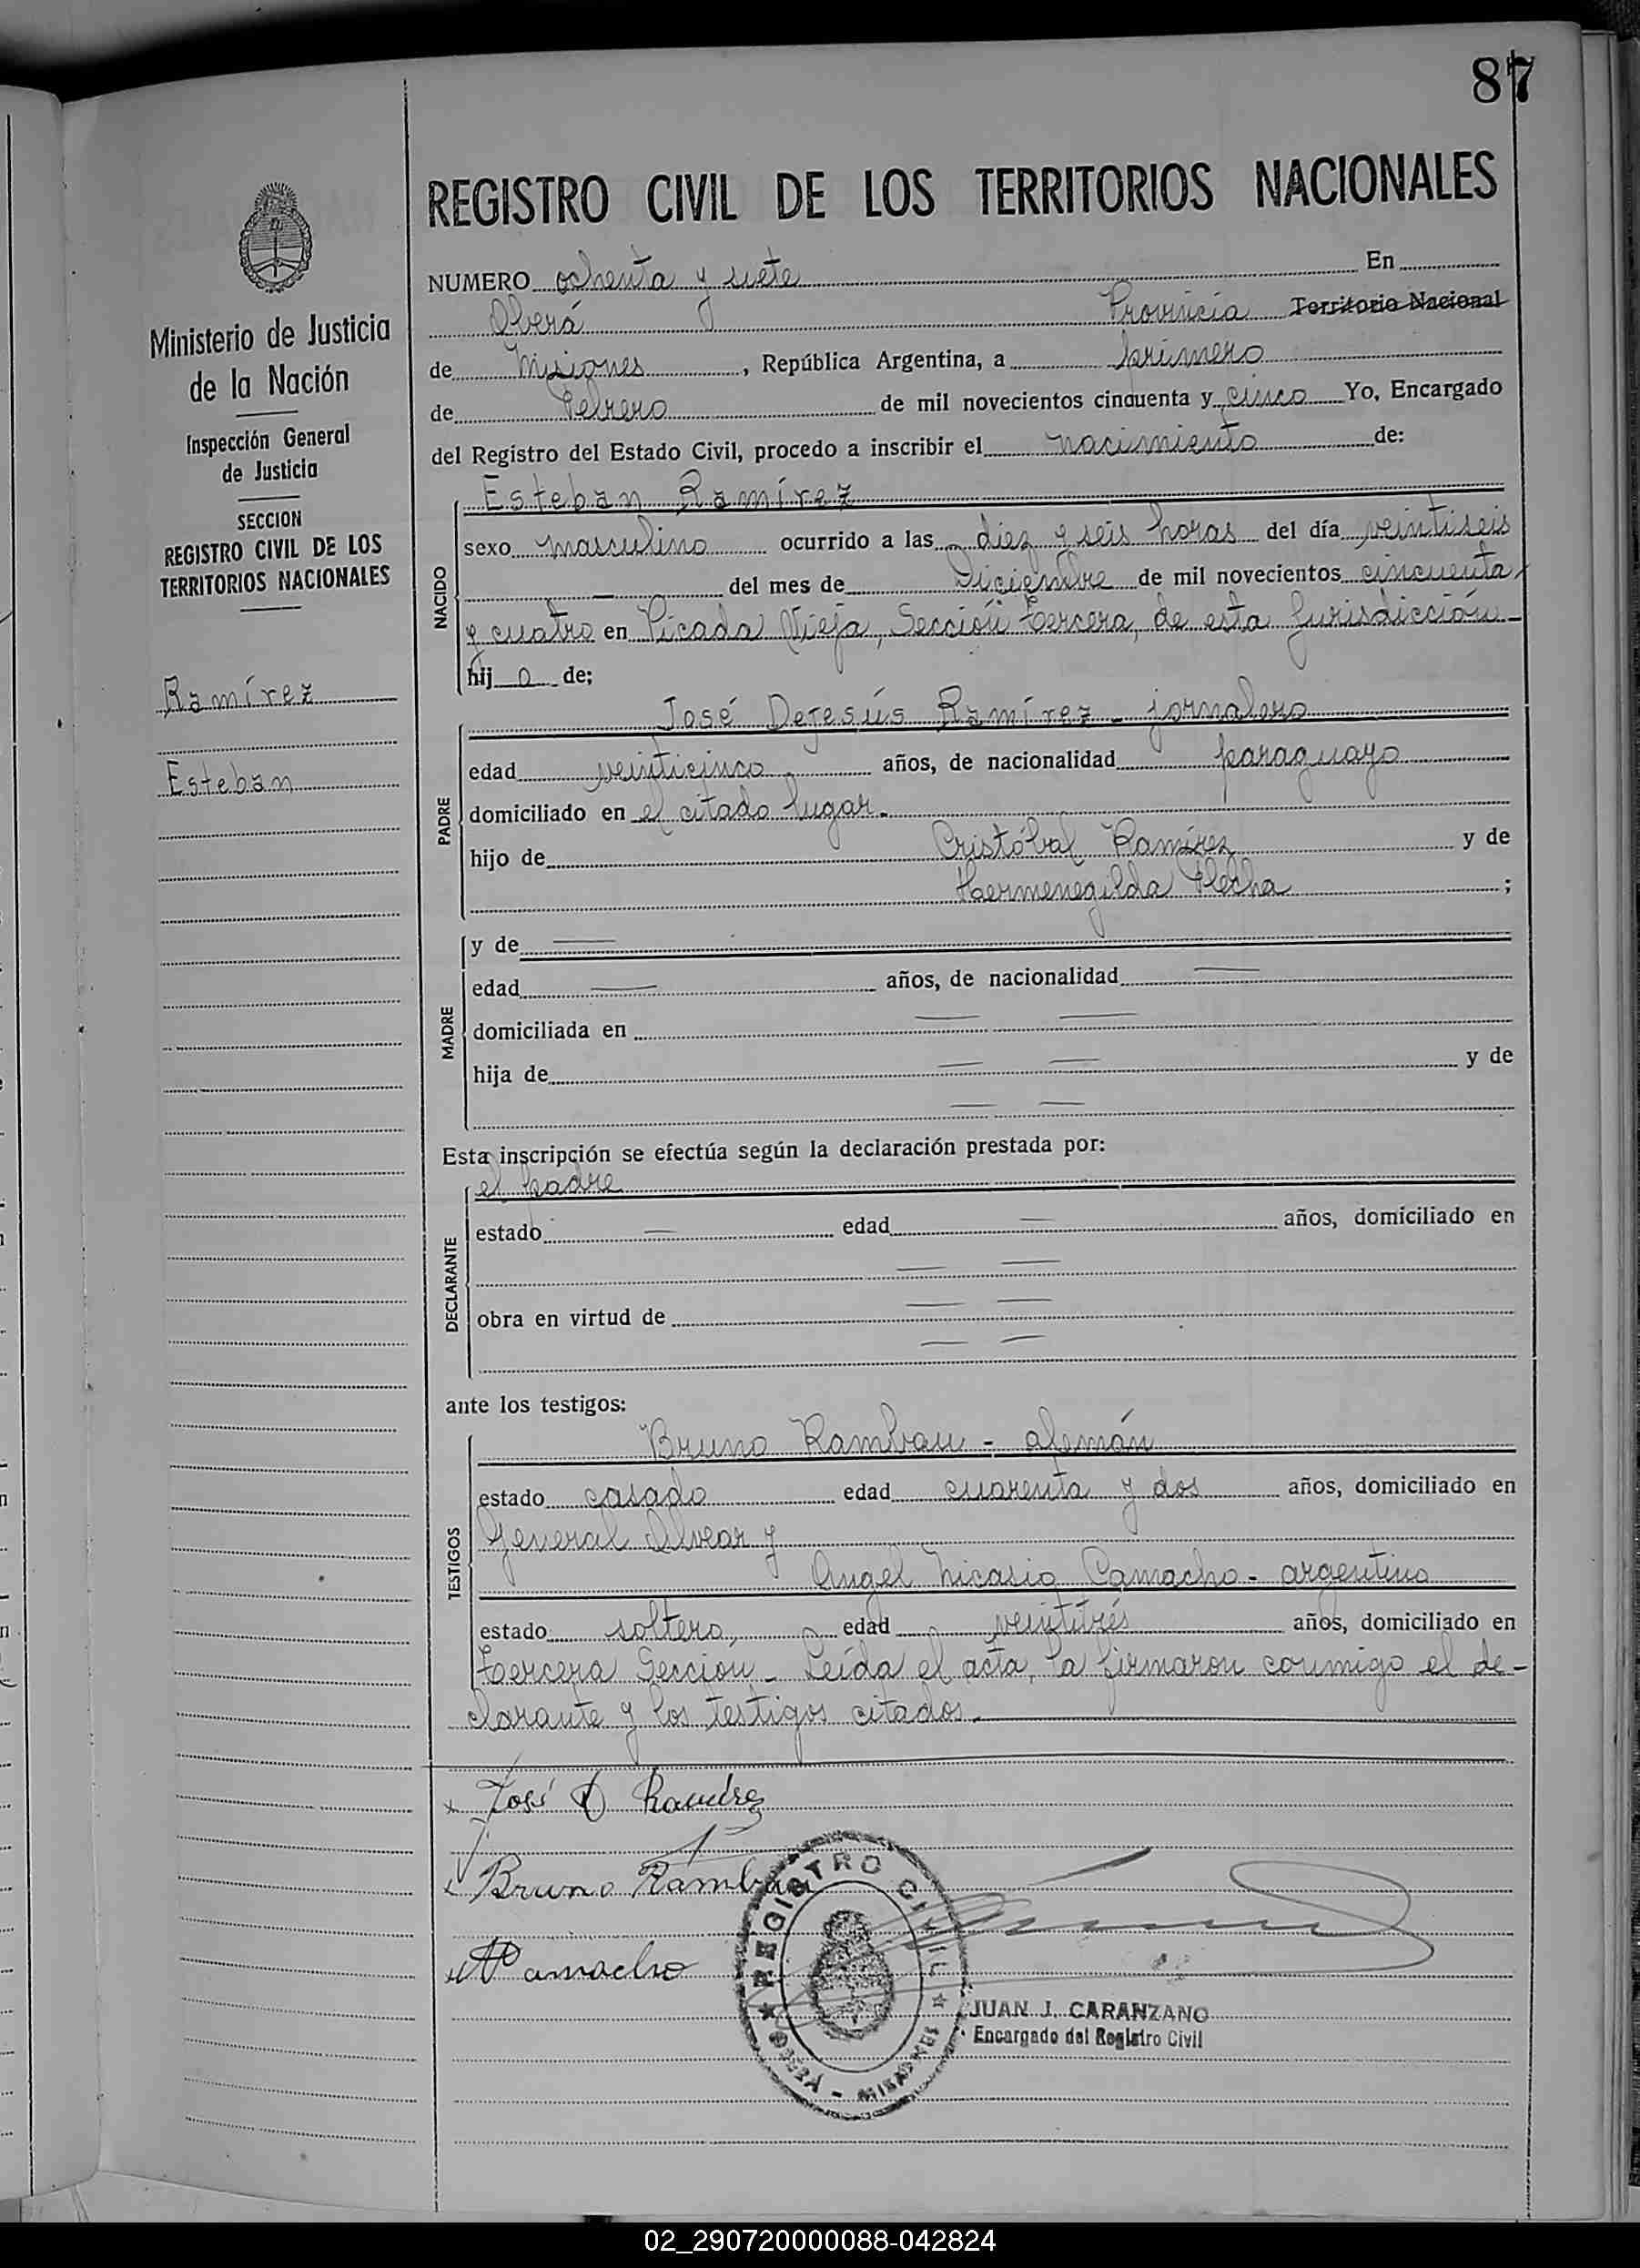 87
REGISTRO CIVIL DE LOS TERRITORIOS NACIONALES
Ministerio de Justicia
de la Nación
Inspección General
de Justicia
SECCION
REGISTRO CIVIL DE LOS
TERRITORIOS NACIONALES
Ramírez
Esteban
NUMERO ochenta y siete En
Oberá Provincia Territorio Nacional
de Misiones, República Argentina, a primero
de Febrero de mil novecientos cincuenta y cinco Yo, Encargado
del Registro del Estado Civil, procedo a inscribir el nacimiento de:
NACIDO
Esteban Ramírez
sexo masculino ocurrido a las diez y seis horas del día veintiseis
— del mes de Diciembre de mil novecientos cincuenta
y cuatro en Picada Vieja, Sección tercera, de esta jurisdicción -
hij o de;
PADRE
José Dejesús Ramírez - jornalero
edad veinticinco años, de nacionalidad paraguayo
domiciliado en el citado lugar.
hijo de Cristóbal Ramírez y de
Hermenegilda Flecha ;
MADRE
y de —
edad — años, de nacionalidad —
domiciliada en — —
hija de — — y de
— —
Esta inscripción se efectúa según la declaración prestada por:
DECLARANTE
el padre
estado — edad — años, domiciliado en
— —
obra en virtud de — —
— —
ante los testigos:
TESTIGOS
Bruno Rambau - alemán
estado casado edad cuarenta y dos años, domiciliado en
General Alvear y
Angel Nicasio Camacho - argentino
estado soltero, edad veintitrés años, domiciliado en
tercera Seccion - Leída el acta, la firmaron conmigo el de-
clarante y los testigos citados.
x José D Ramírez
x Bruno Rambau
x A Camacho
REGISTRO CIVIL
OBERÁ - MISIONES
JUAN J. CARANZANO
Encargado del Registro Civil
02_290720000088-042824